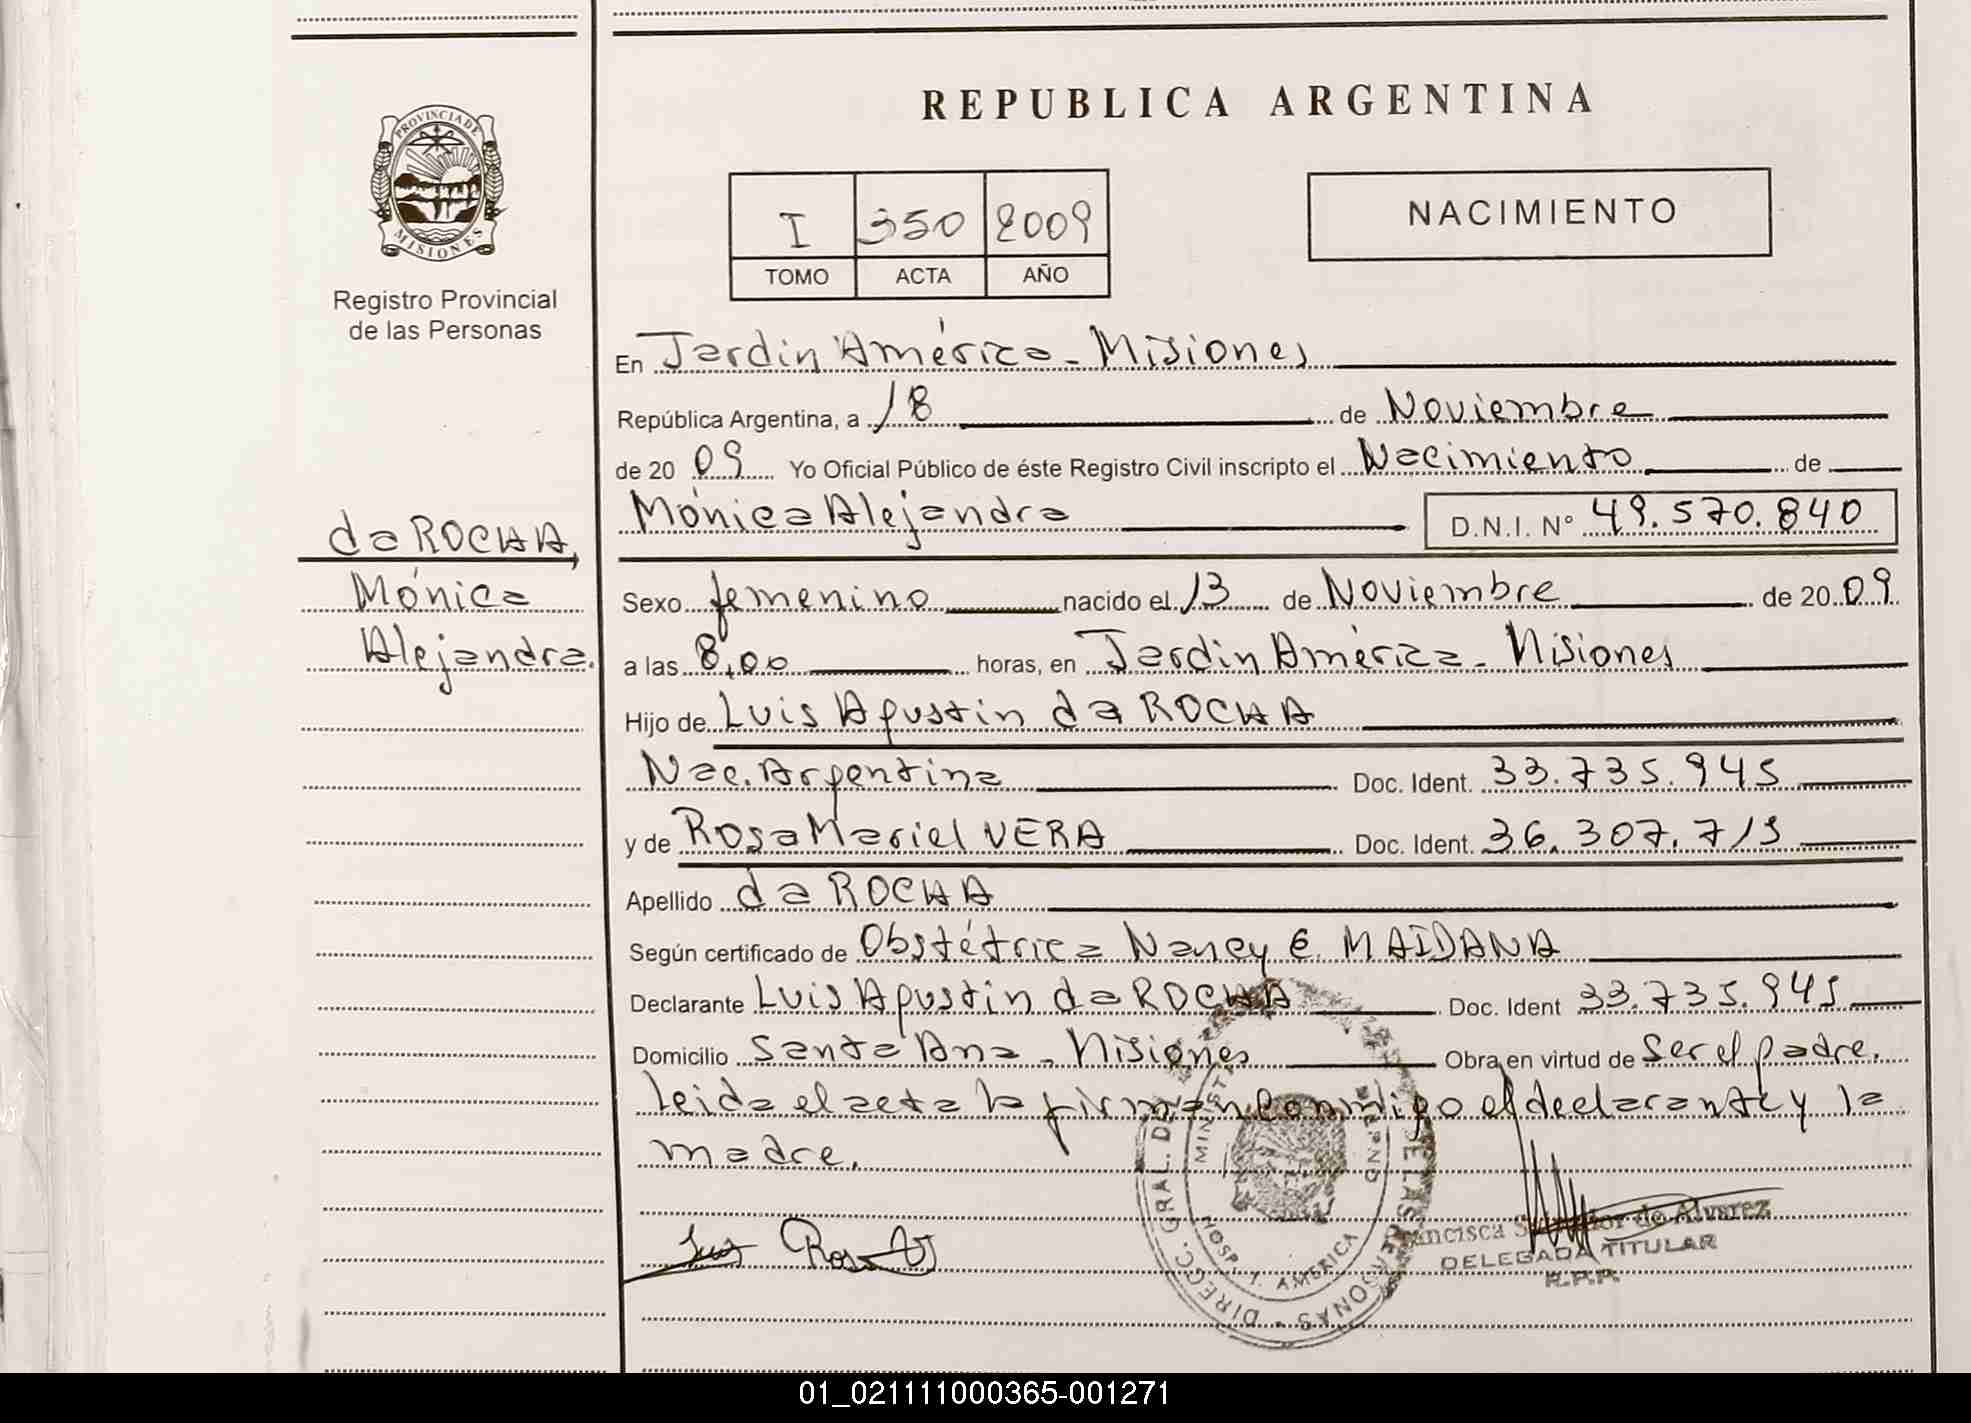 REPUBLICA ARGENTINA
PROVINCIA DE
MISIONES
Registro Provincial
de las Personas
I 350 2009
TOMO ACTA AÑO
NACIMIENTO
En Jardin América - Misiones
República Argentina, a 18 de Noviembre
de 20 09 Yo Oficial Público de éste Registro Civil inscripto el Nacimiento de
Mónica Alejandra D.N.I. N° 49.570.840
da ROCHA,
Mónica
Alejandra.
Sexo femenino nacido el 13 de Noviembre de 20 09
a las 8,00 horas, en Jardin América - Misiones
Hijo de Luis Agustin da ROCHA
Nac. Argentina Doc. Ident. 33.735.945
y de Rosa Mariel VERA Doc. Ident. 36.307.715
Apellido da ROCHA
Según certificado de Obstétrica Nancy E. MAIDANA
Declarante Luis Agustin da ROCHA Doc. Ident 33.735.945
Domicilio Santa Ana - Misiones Obra en virtud de Ser el padre.
Leida el acta la firman conmigo el declarante y la
madre.
Luis Rosa
DIRECC. GRAL. DE LAS PERSONAS
HOSP. J. AMERICA
de Alvarez
DELEGADA TITULAR
R.P.P.
01_021111000365-001271